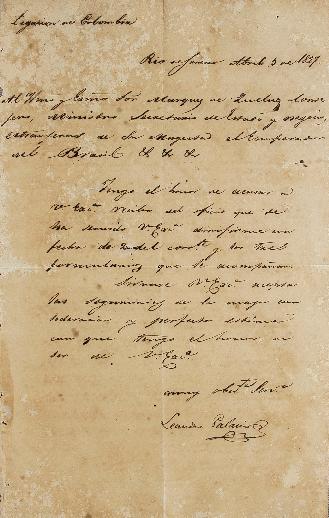 Legacion de Colombia
Rio de Janeiro Abril 5 de 1827
Al Ilmo y Exmo Sor Marques de Queluz Conse
jero, Ministro Secretario de Estado y negocios
extrangeros de Su Magestad el Emperador
del Brasil & & &
Tengo el honor de acusar a
V. Exca. recibo del oficio que se
ha servido V. Exca. dirigirme con
fecha de 2 del corrte. y los tres
formularios que le acompañan
Sirvase V. Exca. aceptar
las seguridades de la mayor con
sideracion y perfecta estima
con que tengo el honor de
ser de V. Exca.
muy obete. Serv.
Leandro Palacios